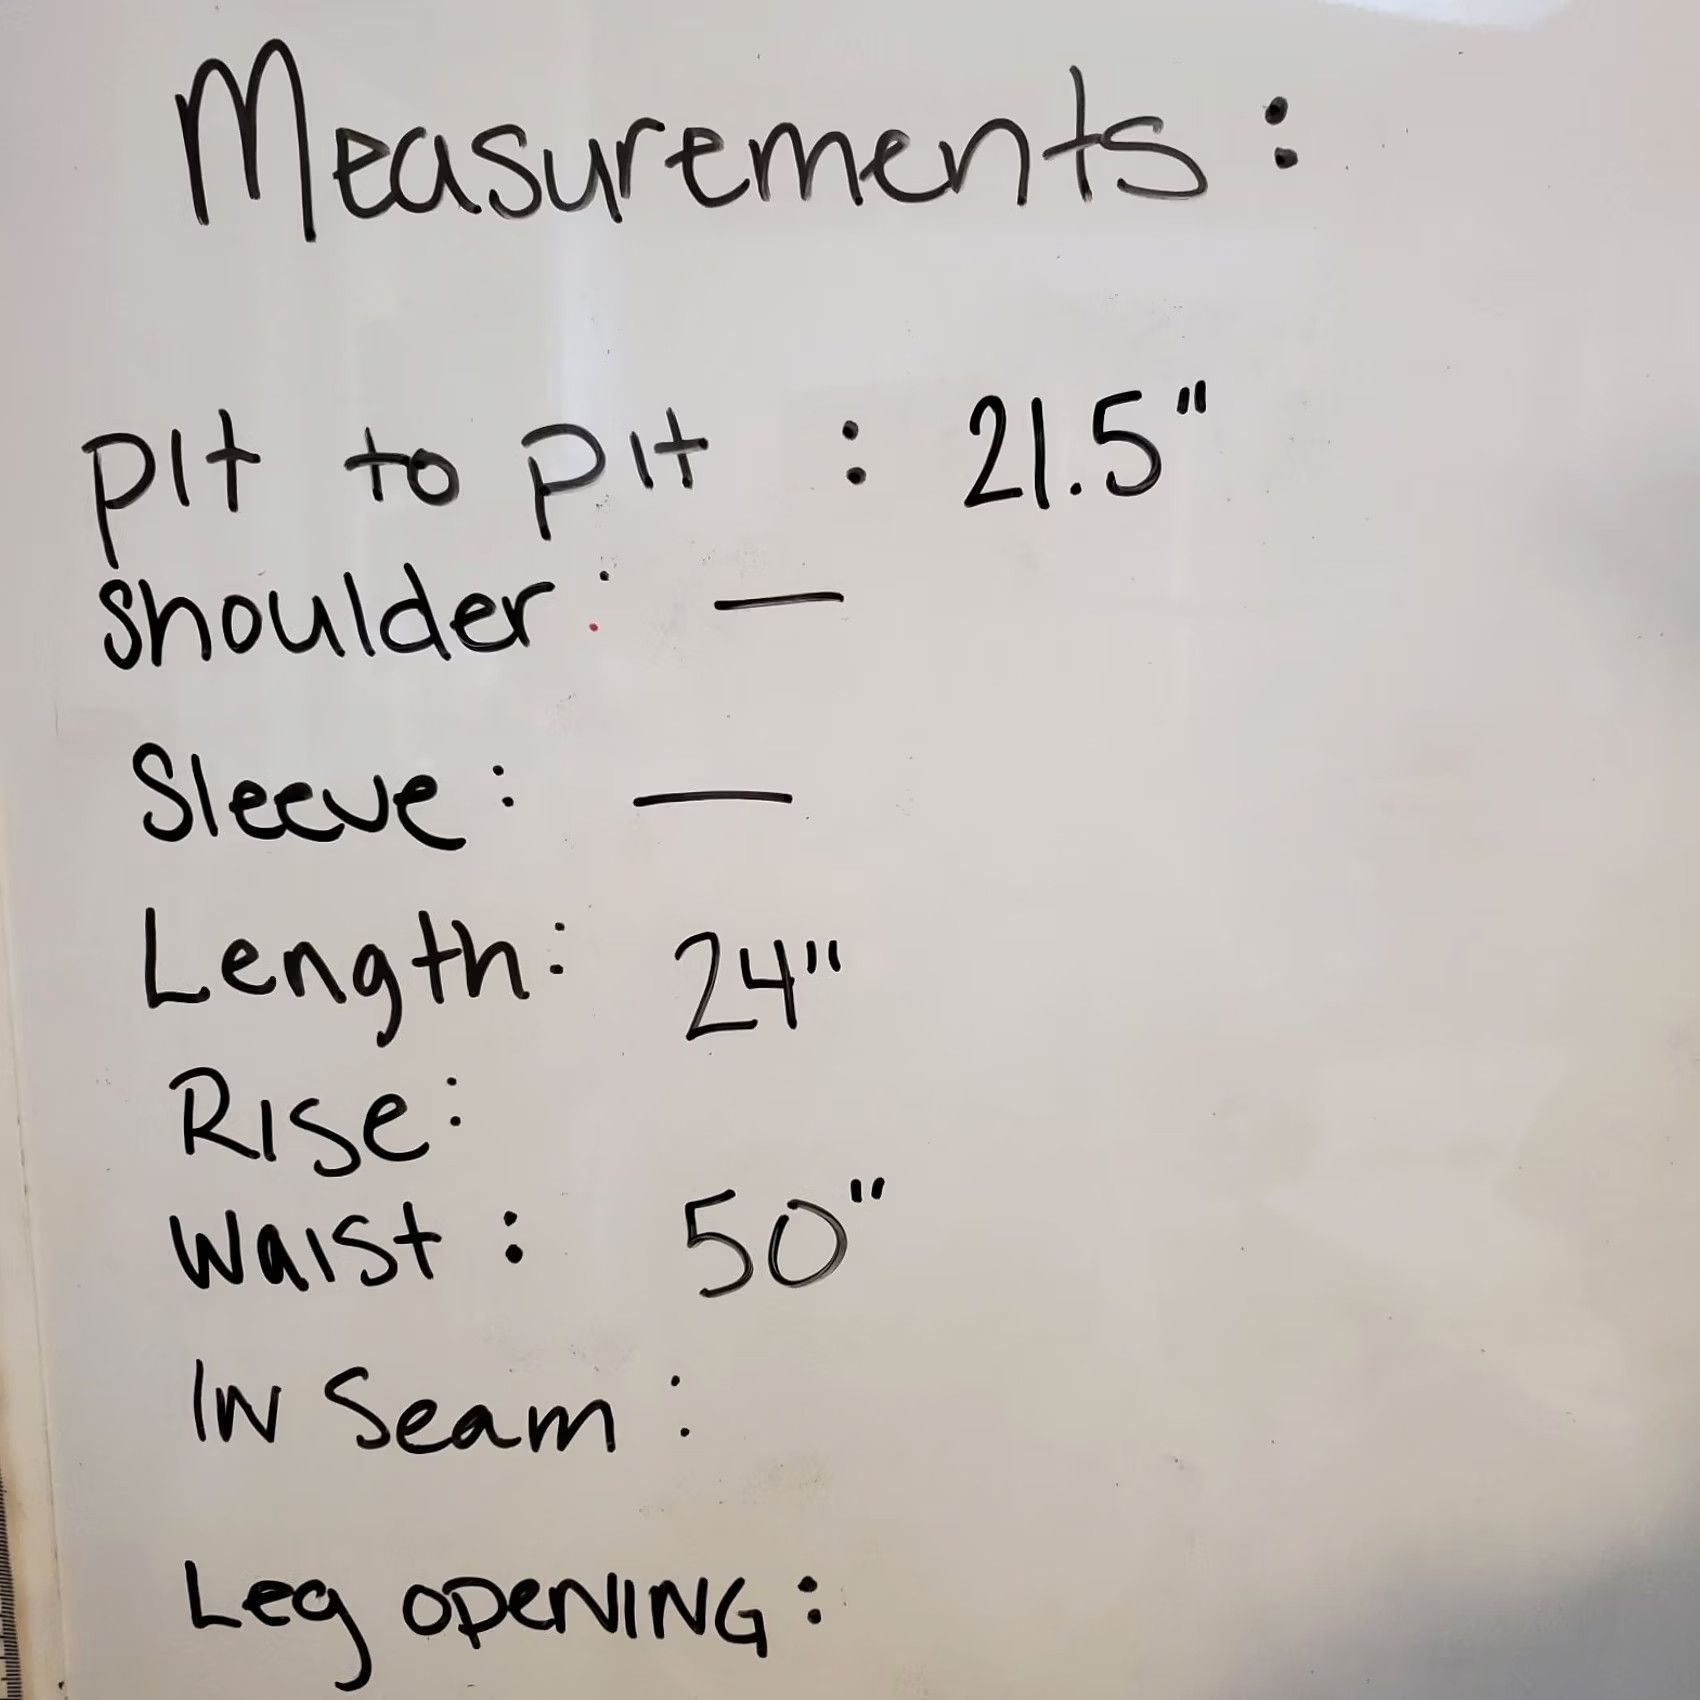 Measurements :
pit to pit : 21.5"
shoulder : —
Sleeve : —
Length : 24"
Rise :
Waist : 50"
IN Seam :
Leg OPENING :